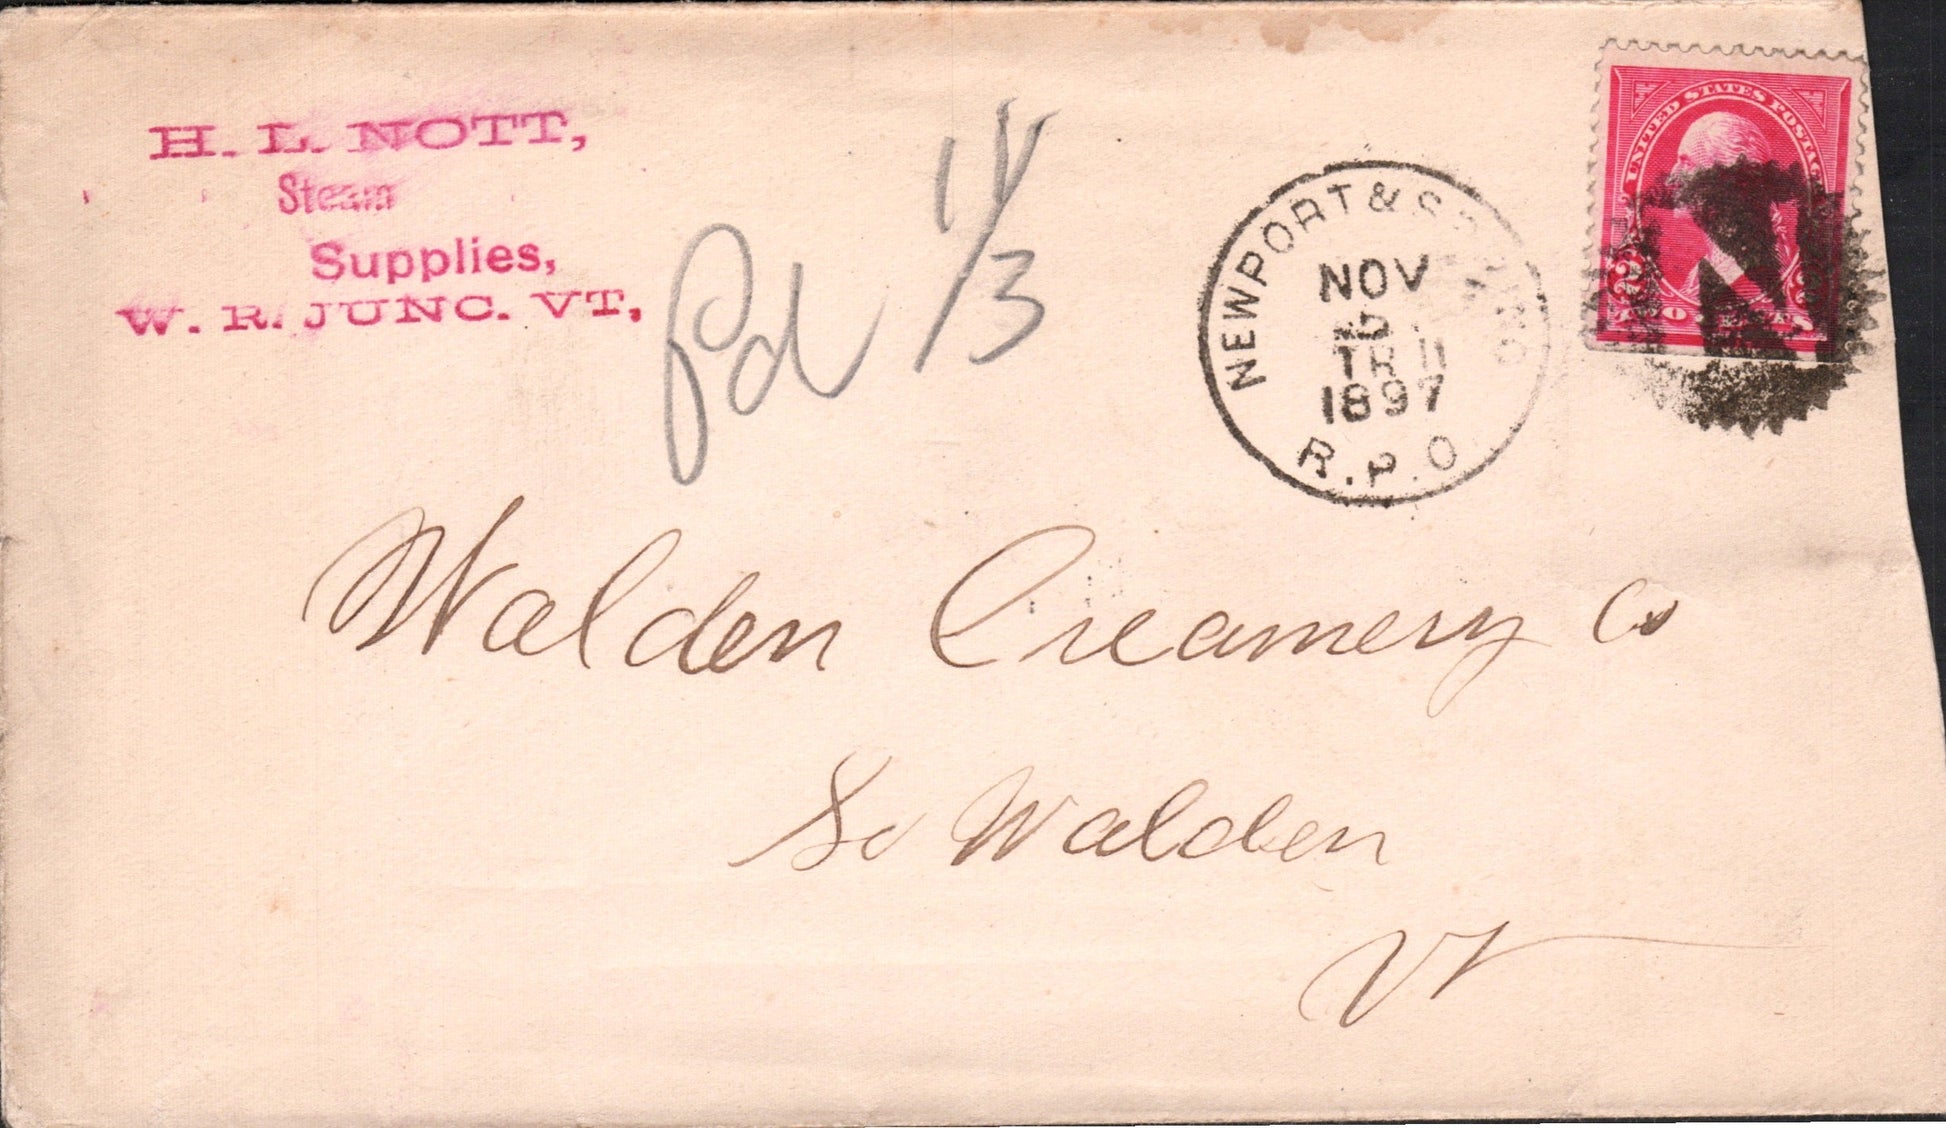 H. L. NOTT,
Steam
Supplies,
W. R. JUNC. VT,
Pd 11/3
NEWPORT & SPRING
NOV
TR 11
1897
R.P.O.
UNITED STATES POSTAGE
2 2
TWO CENTS
Walden Creamery Co
So Walden
Vt